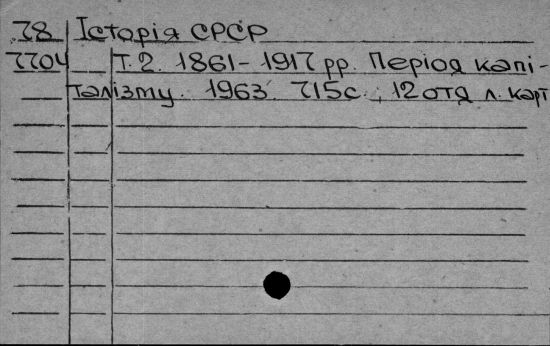 78 Історія СРСР
7704 Т. 2. 1861-1917 рр. Період капі-
талізму. 1963. 715с., 12 отд. л. карт